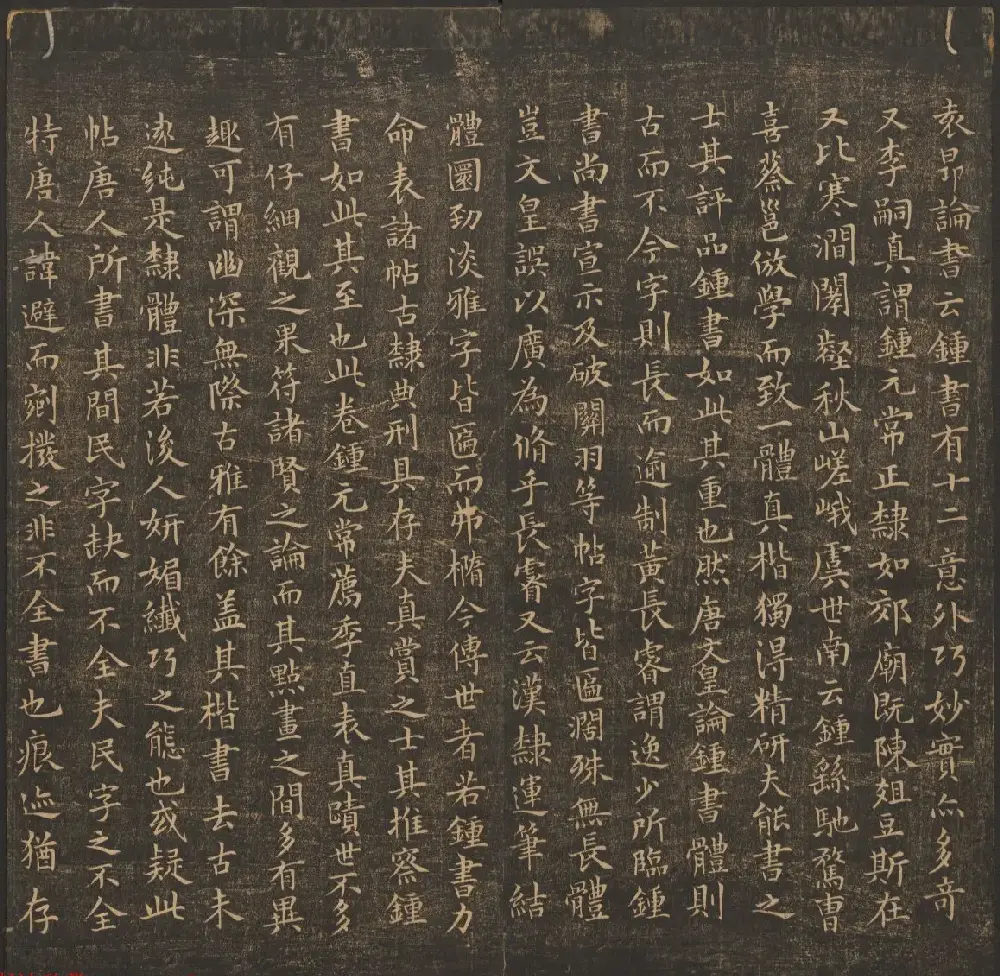 袁昂論書云鍾書有十二意外巧妙實亦多竒
又李嗣真謂鍾元常正隸如郊廟既陳爼豆斯在
又比寒澗闃壑秋山嵯峨虞世南云鍾繇馳騖曹
喜蔡邕倣學而致一體真楷獨得精研夫能書之
士其評品鍾書如此其重也然唐文皇論鍾書體則
古而不今字則長而逾制黃長睿謂逸少所臨鍾
書尚書宣示及破關羽等帖字皆匾濶殊無長體
豈文皇誤以廣為脩乎長睿又云漢隸運筆結
體圜勁淡雅字皆匾而弗橢今傳世者若鍾書力
命表諸帖古隸典刑具存夫真賞之士其推察鍾
書如此其至也此卷鍾元常薦季直表真蹟世不多
有仔細觀之果符諸賢之論而其點畫之間多有異
趣可謂幽深無際古雅有餘盖其楷書去古未
逺純是隸體非若後人妍媚纖巧之態也或疑此
帖唐人所書其間民字缺而不全夫民字之不全
特唐人諱避而剜撥之非不全書也痕迹猶存